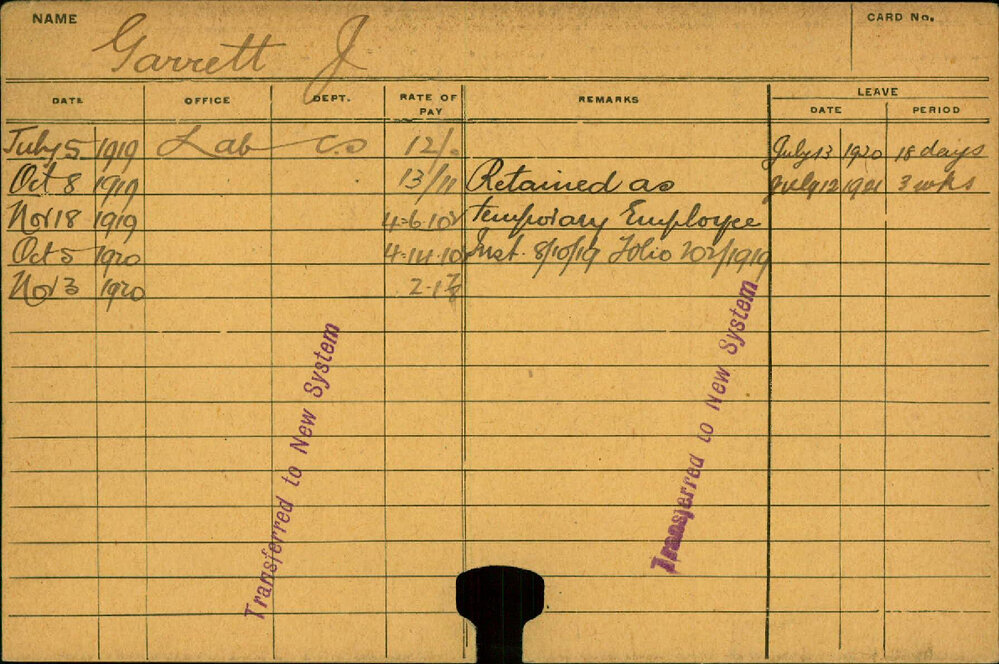 NAME Garrett J CARD No.
DATE OFFICE DEPT. RATE OF PAY REMARKS LEAVE DATE PERIOD
July 5 1919 Lab C.S 12/- July 13 1920 18 days
Oct 8 1919 13/11 Retained as July 12 1921 3 wks
Nov 18 1919 4-6-10½ temporary Employee
Oct 5 1920 4-14-10 Inst. 8/10/19 Folio 202/1919
Nov 3 1920
Transferred to New System
Transferred to New System